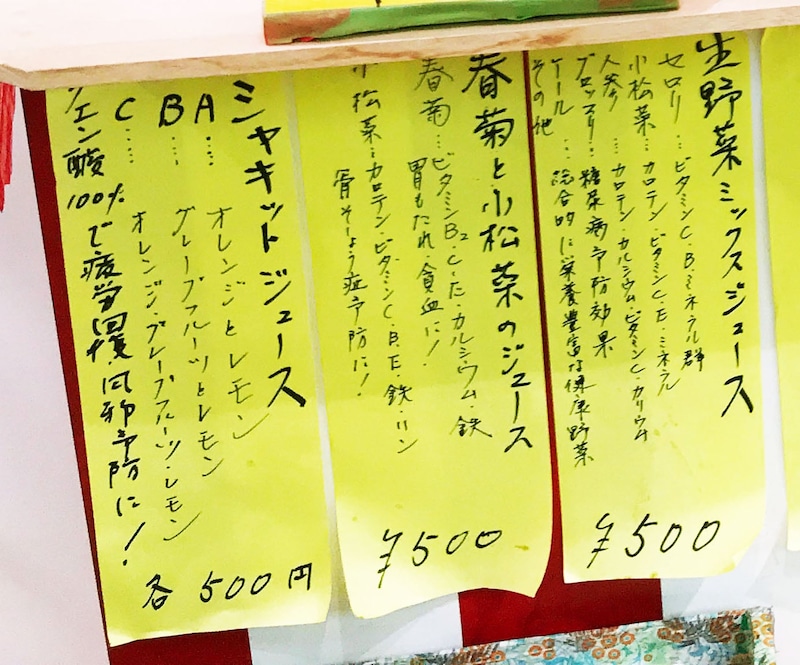 生野菜ミックスジュース
セロリ…ビタミンC・B・ミネラル群
小松菜…カロテン・ビタミンC・E・ミネラル
人参…カロテン・カルシウム・ビタミンC・カリウム
ブロッコリー…糖尿病予防効果
ケール…総合的に栄養豊富な健康野菜
その他
¥500
春菊と小松菜のジュース
春菊…ビタミンB2・C・E・カルシウム・鉄
胃もたれ・貧血に!
小松菜…カロテン・ビタミンC・B・E・鉄・リン
骨そしょう症予防に!
¥500
シャキットジュース
A…オレンジとレモン
B…グレープフルーツとレモン
C…オレンジ・グレープフルーツ・レモン
クエン酸100%で疲労回復・風邪予防に!
各500円